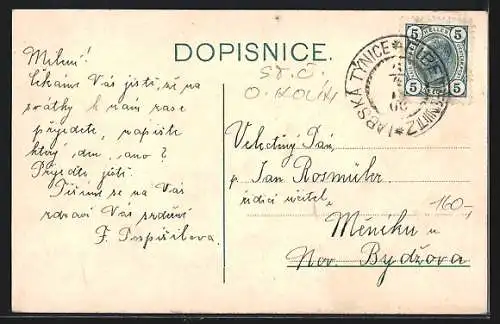 DOPISNICE.
ST. Č.
O. KOLÍN
5 HELLER 5
5 5
LABSKÁ TÝNICE * ELBE
Milení!
Čekáme Vás jistě, že na
svátky k nám zase
přijedete, napište
který den, ano?
Přijeďte jistě.
Těšíme se na Vás
zdraví Vás srdečně
F. Pospíšilova.
Velectěný Pán,
p. Jan Rosmühr
řídící učitel,
Měníku u
Nov. Bydžova
160,-